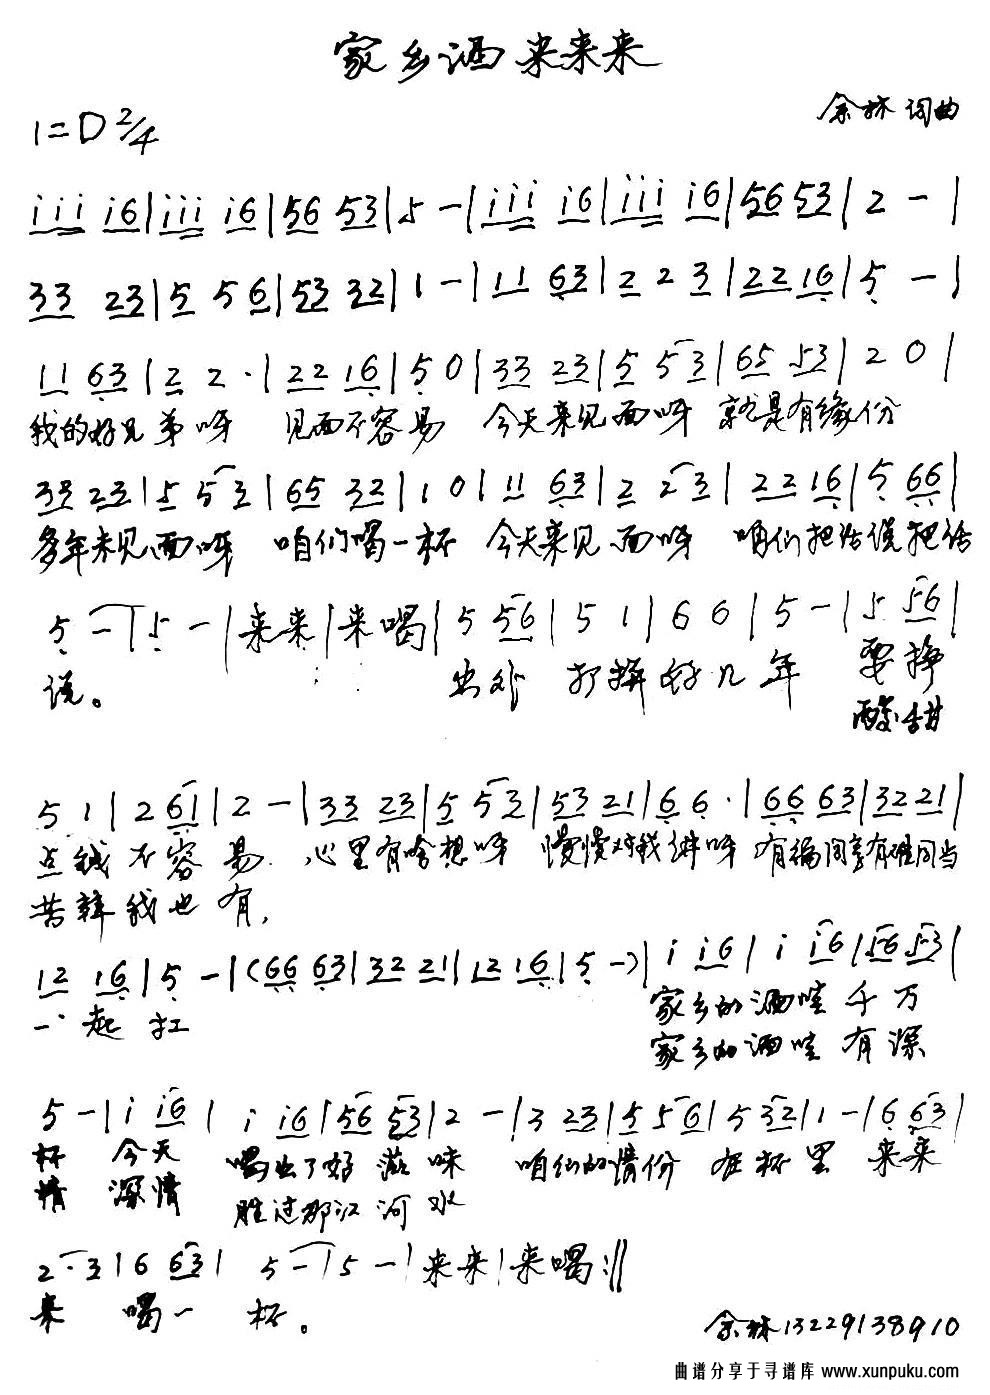 家乡酒来来来
余林词曲
1=D 2/4
i i i i 6 | i i i i 6 | 5 6 5 3 | 5 - | i i i i 6 | i i i i 6 | 5 6 5 3 | 2 - |
3 3 2 3 | 5 5 6 | 5 3 3 2 | 1 - | 1 1 6 3 | 2 2 3 | 2 2 1 6 | 5 - |
1 1 6 3 | 2 2 · | 2 2 1 6 | 5 0 | 3 3 2 3 | 5 5 3 | 6 5 5 3 | 2 0 |
我的好兄弟呀 见面不容易 今天来见面呀 就是有缘份
3 3 2 3 | 5 5 3 | 6 5 3 2 | 1 0 | 1 1 6 3 | 2 2 3 | 2 2 1 6 | 5 6 6 |
多年未见面呀 咱们喝一杯 今天来见面呀 咱们把话说把话
5 - | 5 - | 来来 | 来喝 | 5 5 6 | 5 1 | 6 6 | 5 - | 5 5 6 |
说。 出外打拼好几年 要挣
酸甜
5 1 | 2 6 1 | 2 - | 3 3 2 3 | 5 5 3 | 5 3 2 1 | 6 6 · | 6 6 6 3 | 3 2 2 1 |
点钱不容易. 心里有啥想呀 慢慢对我讲呀 有福同享有难同当
苦辣我也有,
1 2 1 6 | 5 - | ( 6 6 6 3 | 3 2 2 1 | 1 2 1 6 | 5 - ) | i i 6 | i i 6 | 5 6 5 3 |
一起扛 家乡的酒哇千万
家乡的酒哇有深
5 - | i i 6 | i i 6 | 5 6 5 3 | 2 - | 3 2 3 | 5 5 6 | 5 3 2 | 1 - | 6 6 3 |
杯 今天喝出了好滋味 咱们的情份在杯里 来来
情 深情胜过那江河水
2 · 3 | 6 6 3 | 5 - | 5 - | 来来 | 来喝 :||
来 喝一杯。
余林13229138910
曲谱分享于寻谱库 www.xunpuku.com